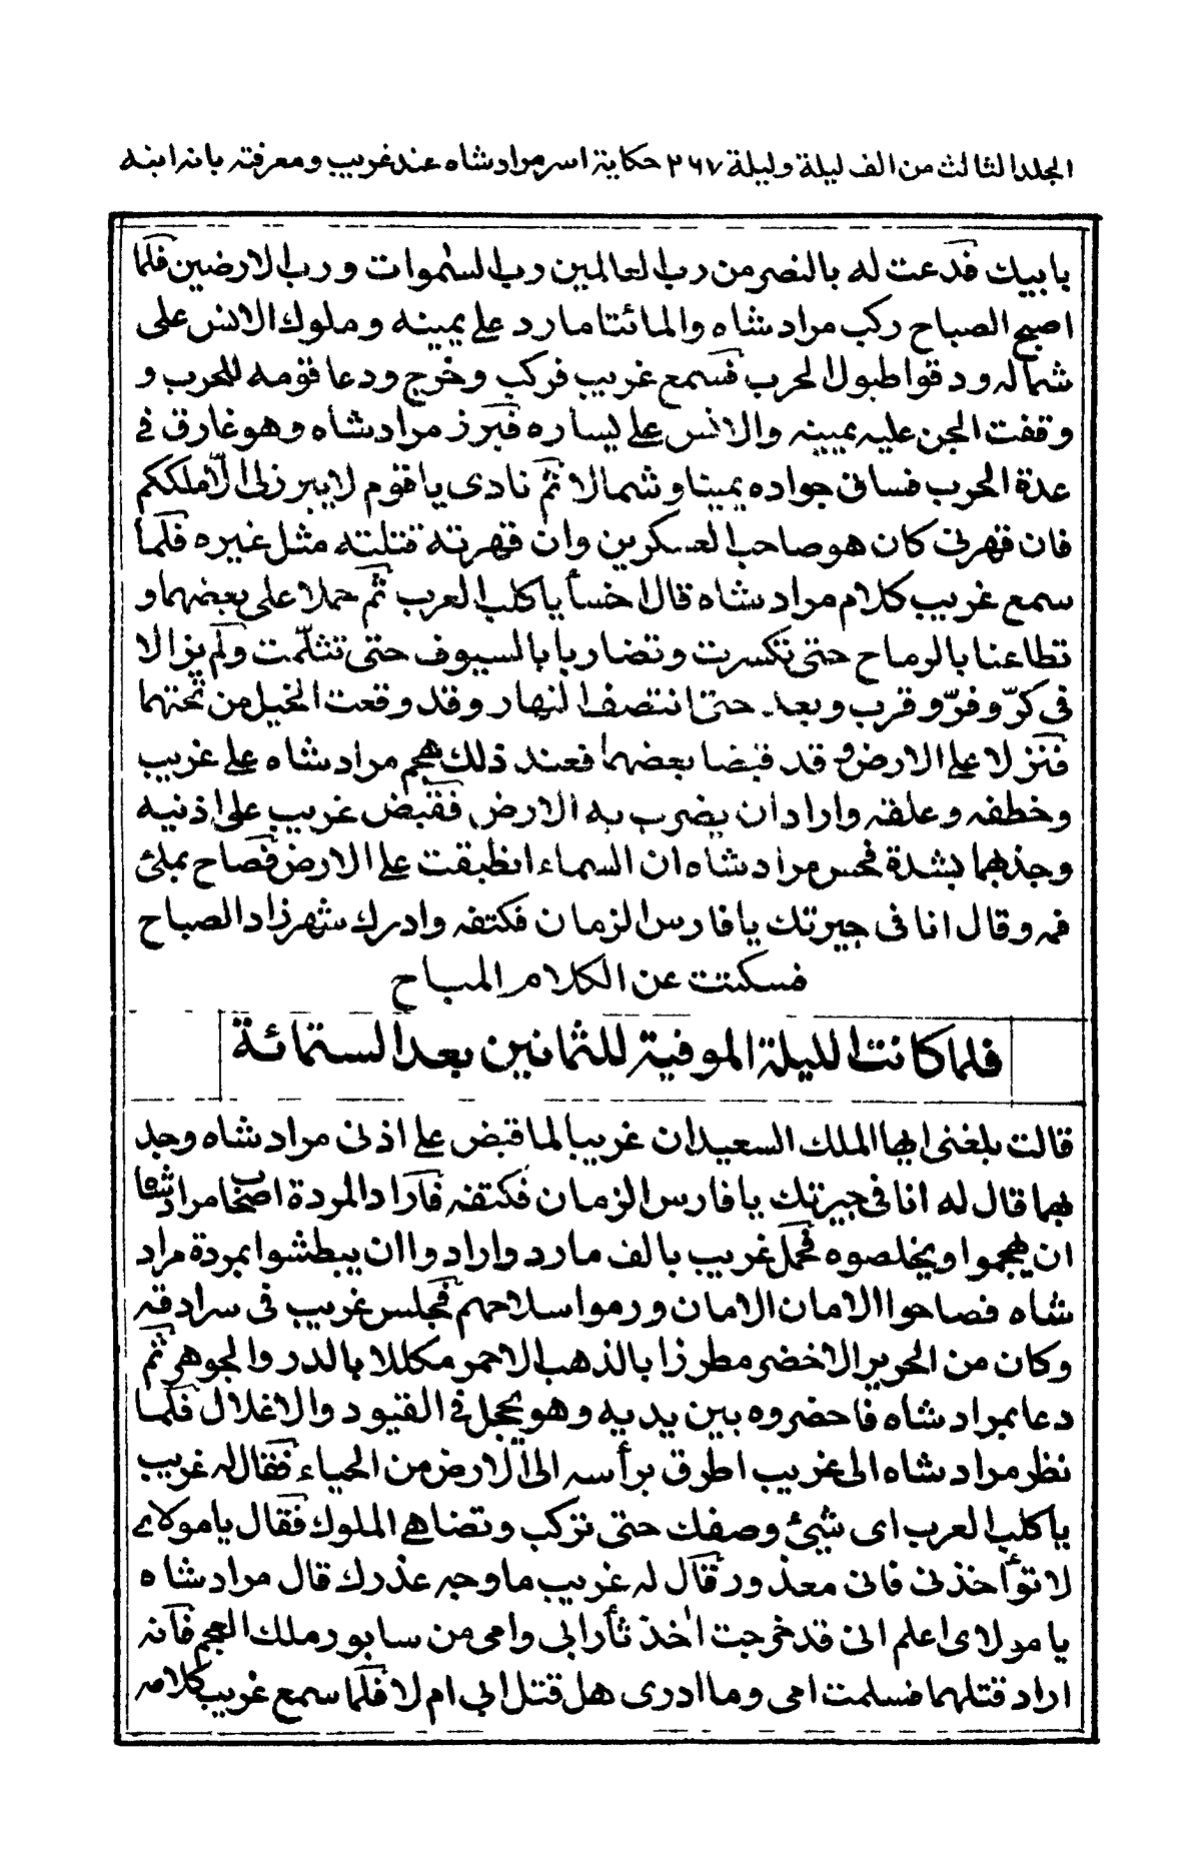 المجلد الثالث من الف ليلة وليلة ٢٦٧ حكاية اسر مراد شاه عند غريب ومعرفته بانه ابنه
بابيك فدعت له بالنصر من رب العالمين رب السموات ورب الارضين فلما
اصبح الصباح ركب مراد شاه والمائتا مارد على يمينه وملوك الانس على
شماله ودقوا طبول الحرب فسمع غريب فركب وخرج ودعا قومه للحرب و
وقفت الجن عليه يمينه والانس على يساره فبرز مراد شاه وهو غارق فى
عدة الحرب فساق جواده يمينا وشمالا ثم نادى يا قوم لا يبرز لى الّا ملككم
فان قهرنى كان هو صاحب العسكرين وان قهرته قتلته مثل غيره فلما
سمع غريب كلام مراد شاه قال اخسأ يا كلب العرب ثم حملا على بعضهما و
تطاعنا بالرماح حتى تكسرت وتضاربا بالسيوف حتى تثلّمت ولم يزالا
فى كرّ وفرّ وقرب وبعد حتى انتصف النهار وقد وقعت الخيل من تحتهما
فنزلا على الارض وقد قبضا بعضهما فعند ذلك هجم مراد شاه على غريب
وخطفه وعلقه واراد ان يضرب به الارض فقبض غريب على اذنيه
وجذبهما بشدة فحس مراد شاه ان السماء انطبقت على الارض فصاح بملئ
فمه وقال انا فى جيرتك يا فارس الزمان فكتفه وادرك شهرزاد الصباح
فسكتت عن الكلام المباح
فلما كانت الليلة الموفية للثمانين بعد الستمائة
قالت بلغنى ايها الملك السعيد ان غريبا لما قبض على اذنى مراد شاه وجذ
بهما قال له انا فى جيرتك يا فارس الزمان فكتفه فاراد المردة اصحاب مراد شاه
ان يهجموا ويخلصوه فحمل غريب بالف مارد وارادوا ان يبطشوا بمردة مراد
شاه فصاحوا الامان الامان ورموا سلاحهم فجلس غريب فى سرادقه
وكان من الحرير الاخضر مطرزا بالذهب الاحمر مكللا بالدر والجوهر ثم
دعا بمراد شاه فاحضروه بين يديه وهو يحجل فى القيود والاغلال فلما
نظر مراد شاه الى غريب اطرق برأسه الى الارض من الحياء فقال له غريب
يا كلب العرب اى شيئ وصفك حتى تركب وتضاهى الملوك فقال يا مولاى
لا تؤاخذنى فانى معذور قال له غريب ما وجه عذرك قال مراد شاه
يا مولاى اعلم انى قد خرجت اخذ ثأر ابى وامى من سابور ملك العجم فانه
اراد قتلهما فسلمت امى وما ادرى هل قتل ابى ام لا فلما سمع غريب كلامه